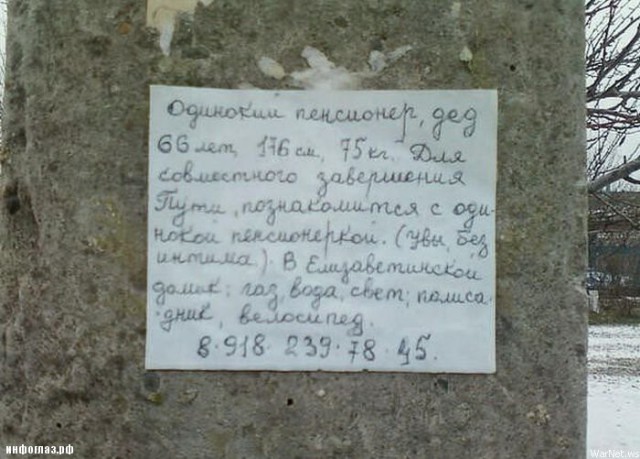 Одинокий пенсионер, дед
66 лет, 176 см, 75 кг. Для
совместного завершения
Пути, познакомится с оди-
нокой пенсионеркой. (Увы, без
интима). В Елизаветинской
домик: газ, вода, свет; полиса-
дник, велосипед.
8·918·239·78·45.
инфоглаз.рф
WarNet.ws